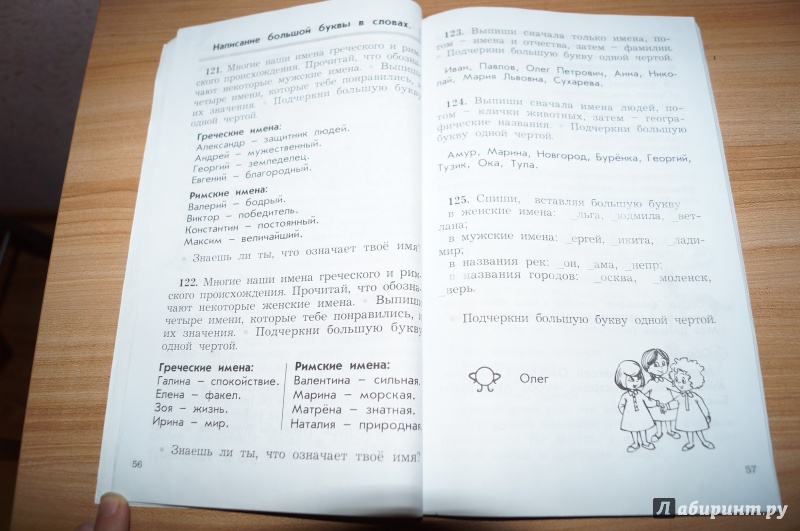 Написание большой буквы в словах.
121. Многие наши имена греческого и рим-
ского происхождения. Прочитай, что обозна-
чают некоторые мужские имена. • Выпиши
четыре имени, которые тебе понравились, и
их значения. • Подчеркни большую букву
одной чертой.
Греческие имена:
Александр – защитник людей.
Андрей – мужественный.
Георгий – земледелец.
Евгений – благородный.
Римские имена:
Валерий – бодрый.
Виктор – победитель.
Константин – постоянный.
Максим – величайший.
• Знаешь ли ты, что означает твоё имя?
122. Многие наши имена греческого и рим-
ского происхождения. Прочитай, что обозна-
чают некоторые женские имена. • Выпиши
четыре имени, которые тебе понравились, и
их значения. • Подчеркни большую букву
одной чертой.
Греческие имена:
Галина – спокойствие.
Елена – факел.
Зоя – жизнь.
Ирина – мир.
Римские имена:
Валентина – сильная.
Марина – морская.
Матрёна – знатная.
Наталия – природная.
• Знаешь ли ты, что означает твоё имя?
56
123. Выпиши сначала только имена, по-
том – имена и отчества, затем – фамилии.
• Подчеркни большую букву одной чертой.
Иван, Павлов, Олег Петрович, Анна, Нико-
лай, Мария Львовна, Сухарева.
124. Выпиши сначала имена людей, по-
том – клички животных, затем – геогра-
фические названия. • Подчеркни большую
букву одной чертой.
Амур, Марина, Новгород, Бурёнка, Георгий,
Тузик, Ока, Тула.
125. Спиши, вставляя большую букву
в женские имена: _льга, _юдмила, _вет-
лана;
в мужские имена: _ергей, _икита, _лади-
мир;
в названия рек: _он, _ама, _непр;
в названия городов: _осква, _моленск,
_верь.
• Подчеркни большую букву одной чертой.
Олег
57
Лабиринт.ру